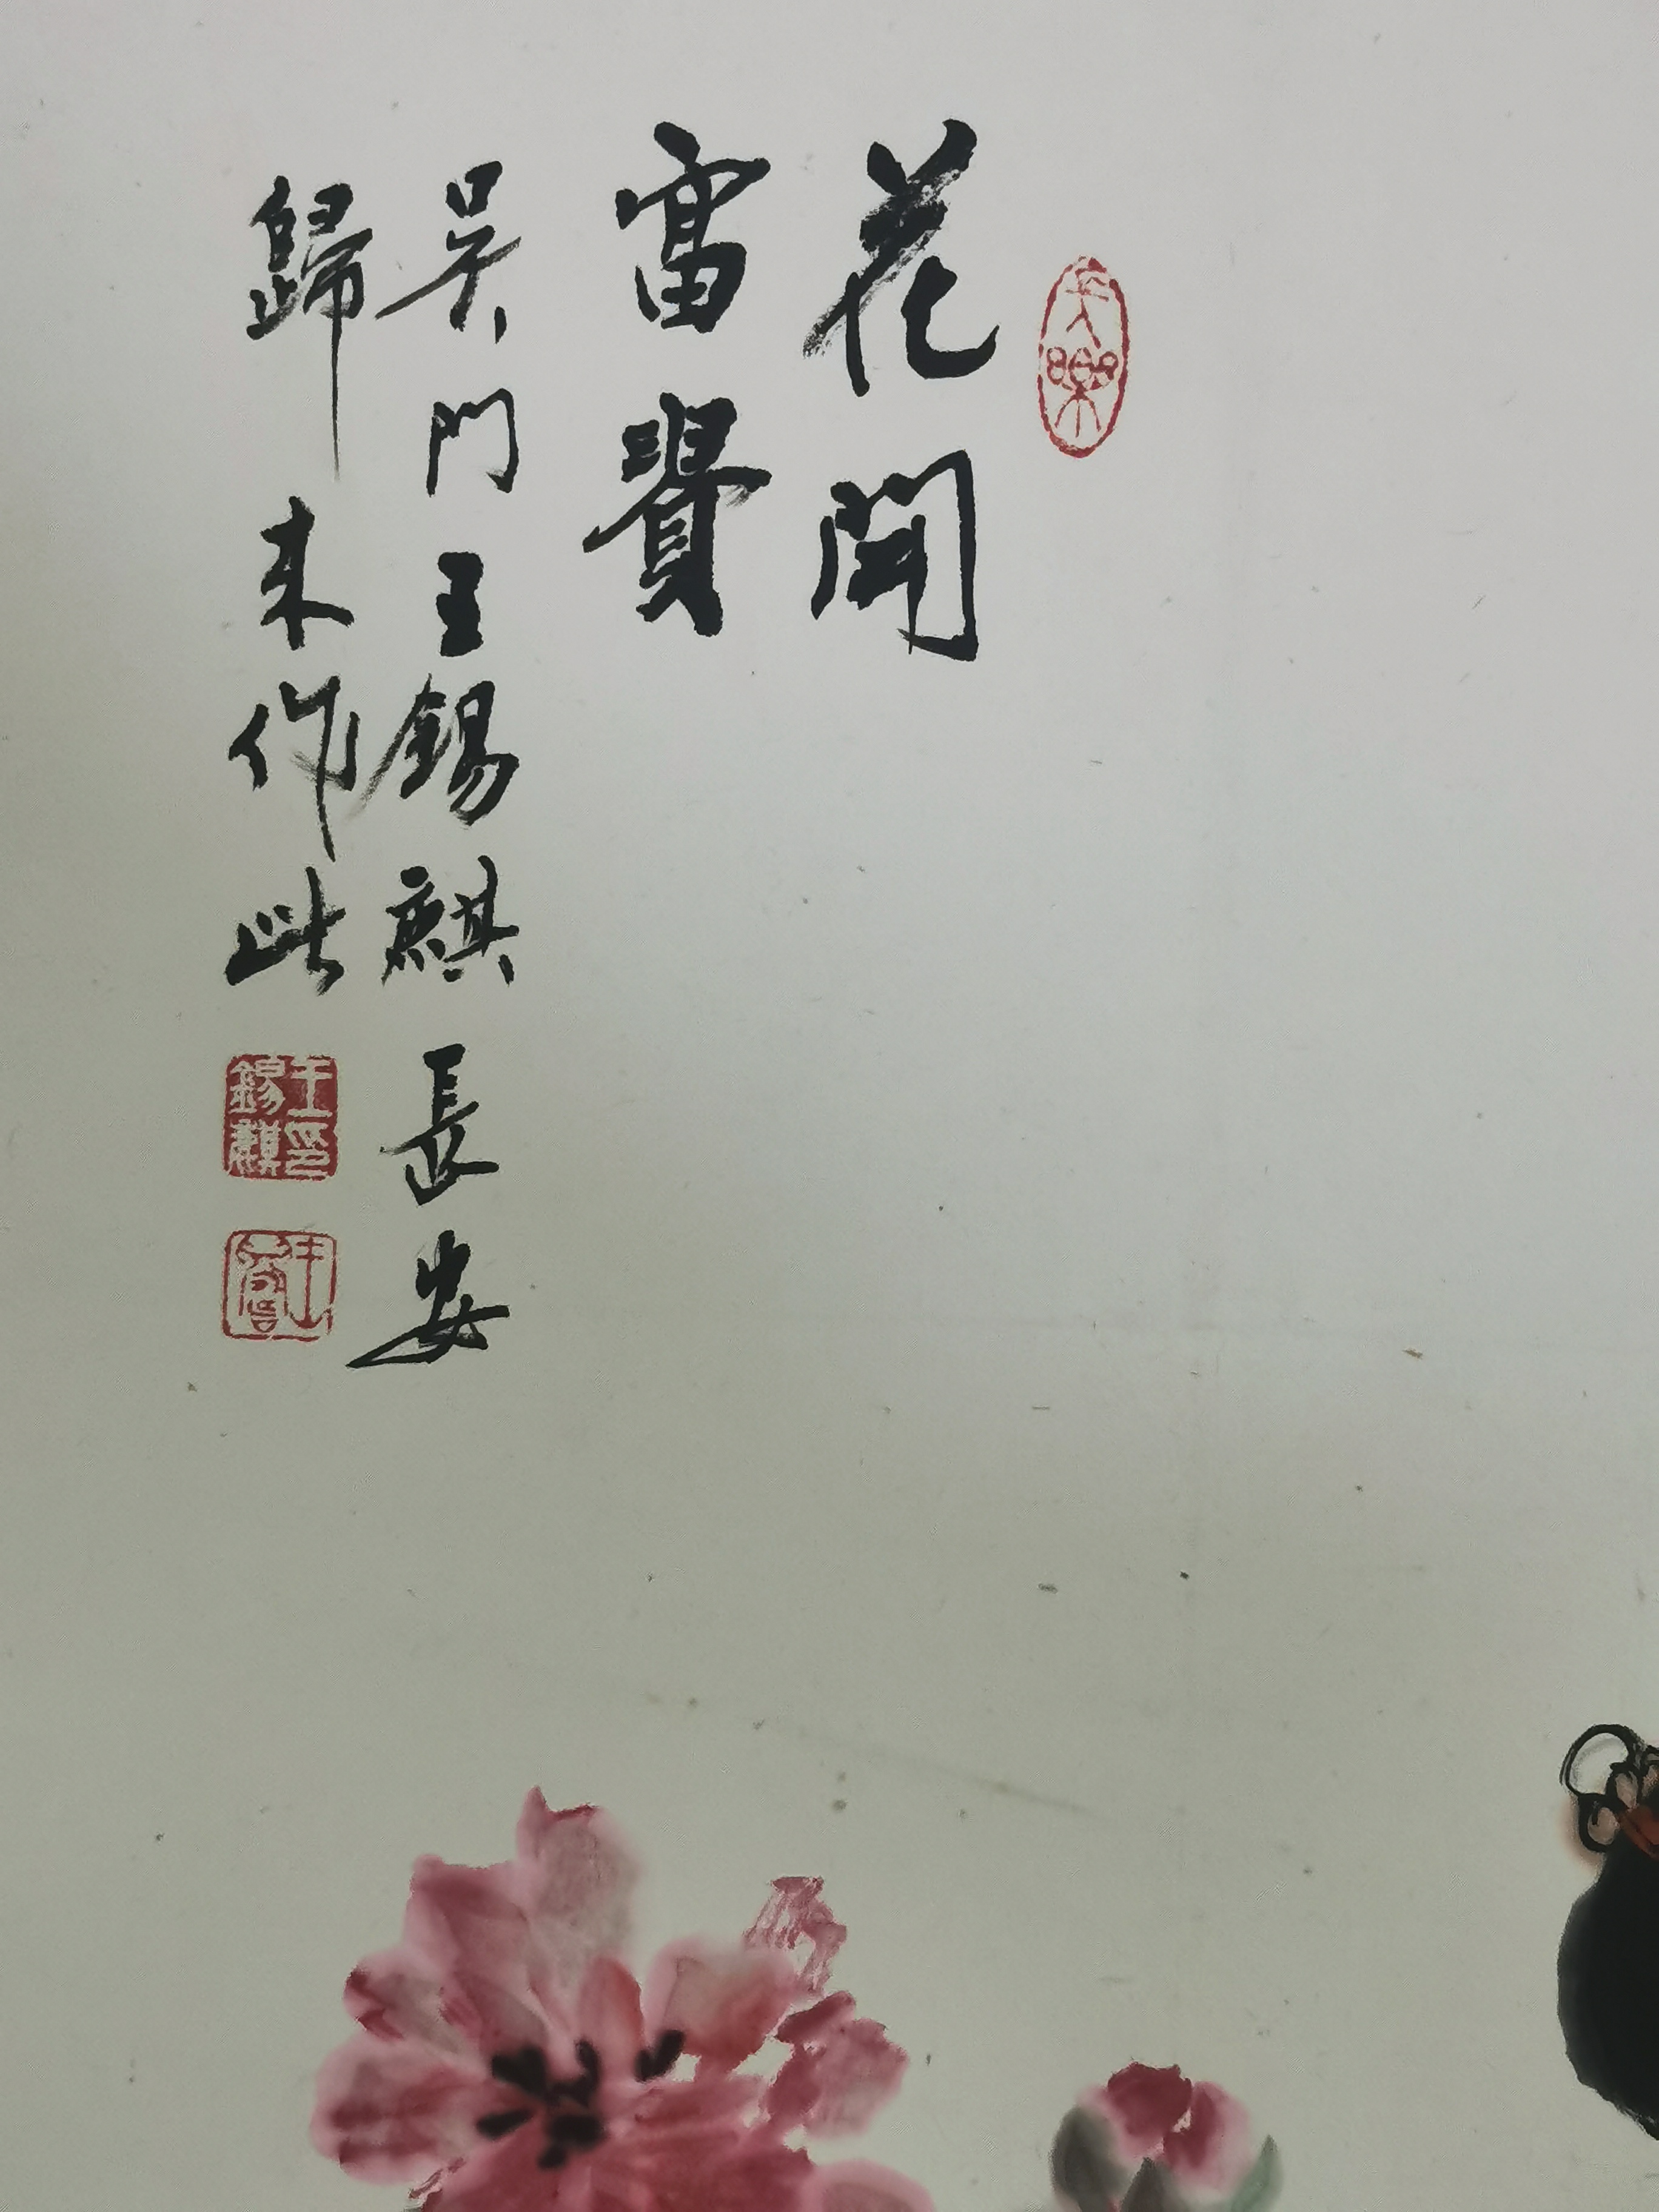 長樂
花開
富貴
吳門王錫麒長安
歸來作此
王印
錫麒